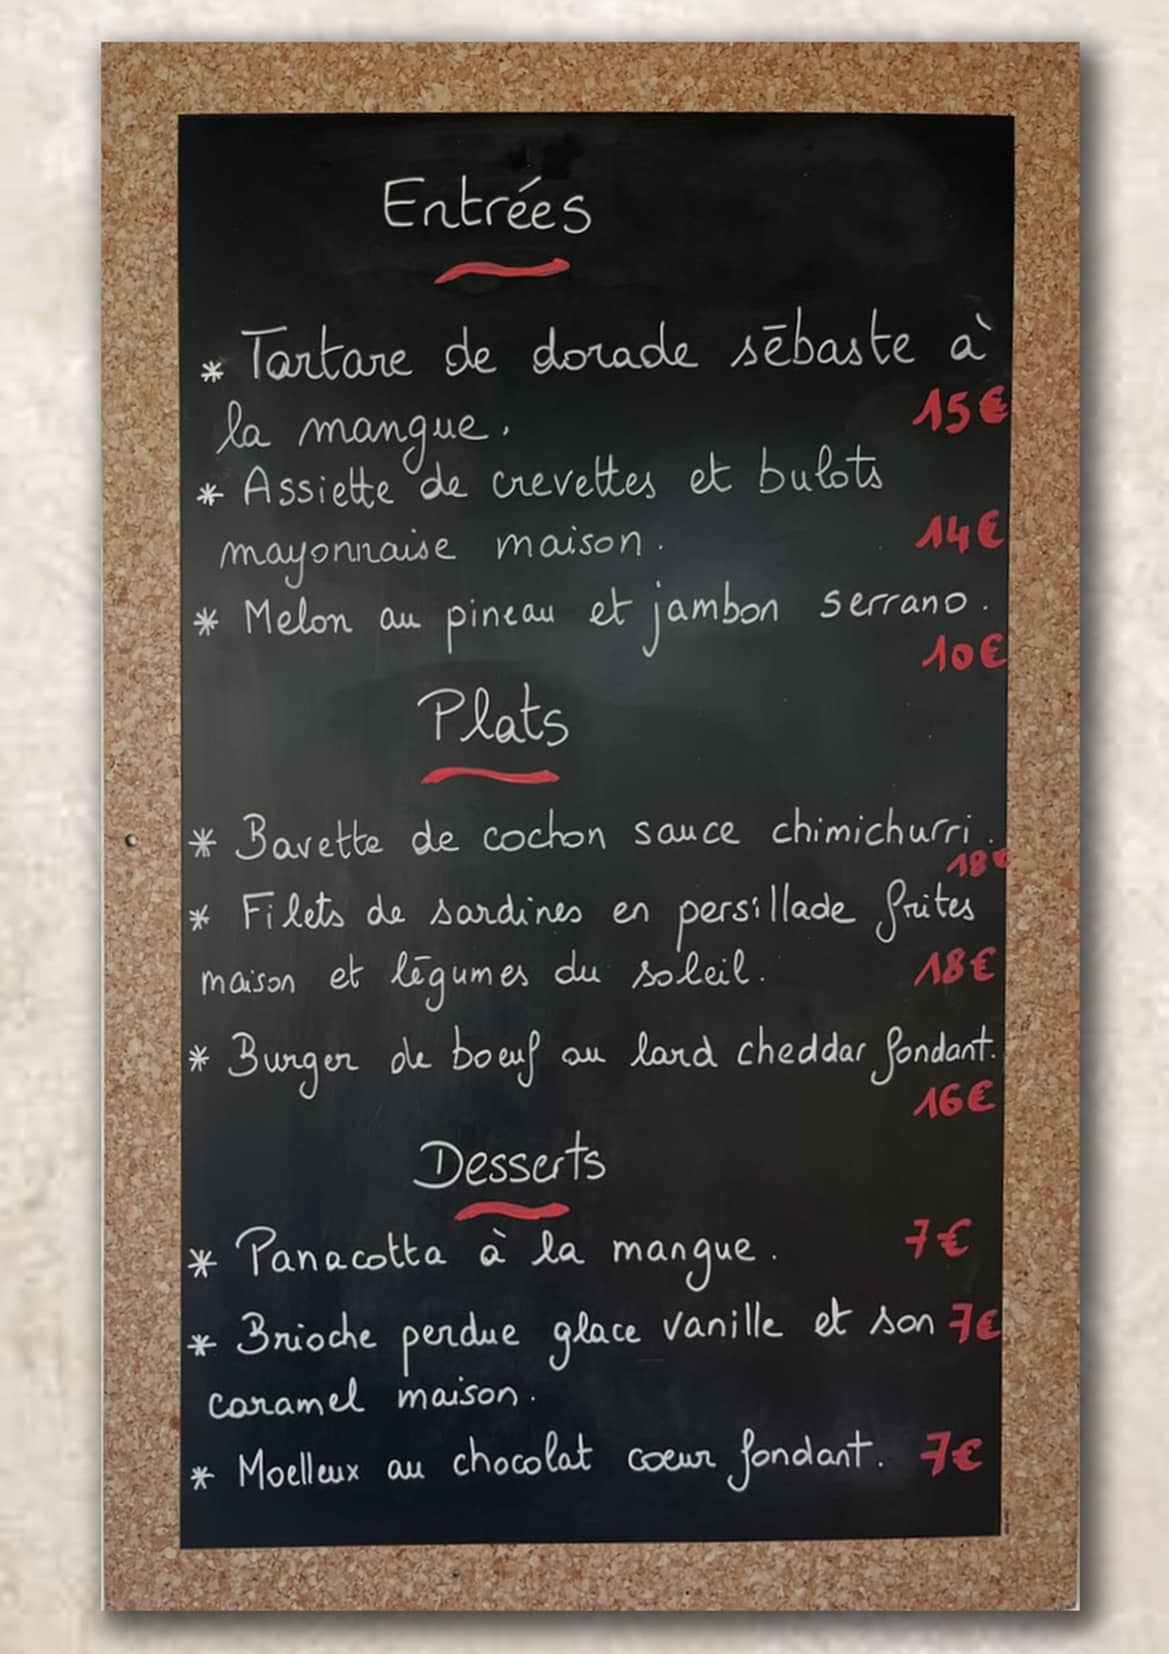 Entrées
* Tartare de dorade sébaste à
la mangue. 15€
* Assiette de crevettes et bulots
mayonnaise maison. 14€
* Melon au pineau et jambon serrano.
10€
Plats
* Bavette de cochon sauce chimichurri.
18€
* Filets de sardines en persillade frites
maison et légumes du soleil. 18€
* Burger de boeuf au lard cheddar fondant.
16€
Desserts
* Panacotta à la mangue. 7€
* Brioche perdue glace vanille et son 7€
caramel maison.
* Moelleux au chocolat coeur fondant. 7€